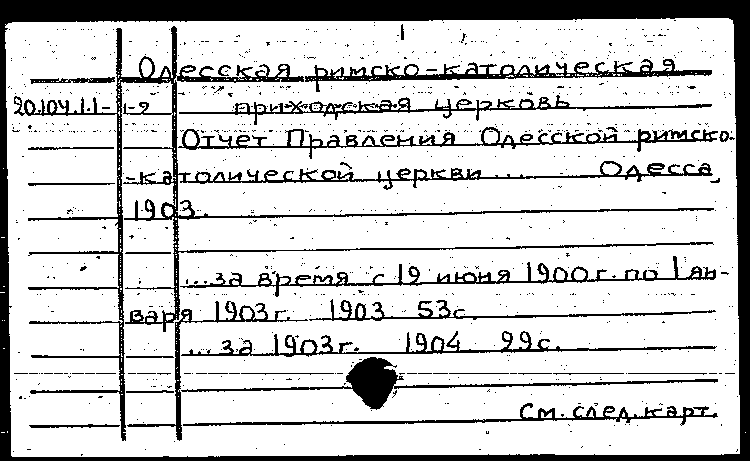 Одесская римско-католическая
20.104.1.1-1-9 приходская церковь.
Отчет Правления Одесской римско-
-католической церкви.... Одесса,
1903.
...за время с 19 июня 1900г. по 1 ян-
варя 1903г. 1903 53с.
...за 1903г. 1904 99с.
См. след. карт.